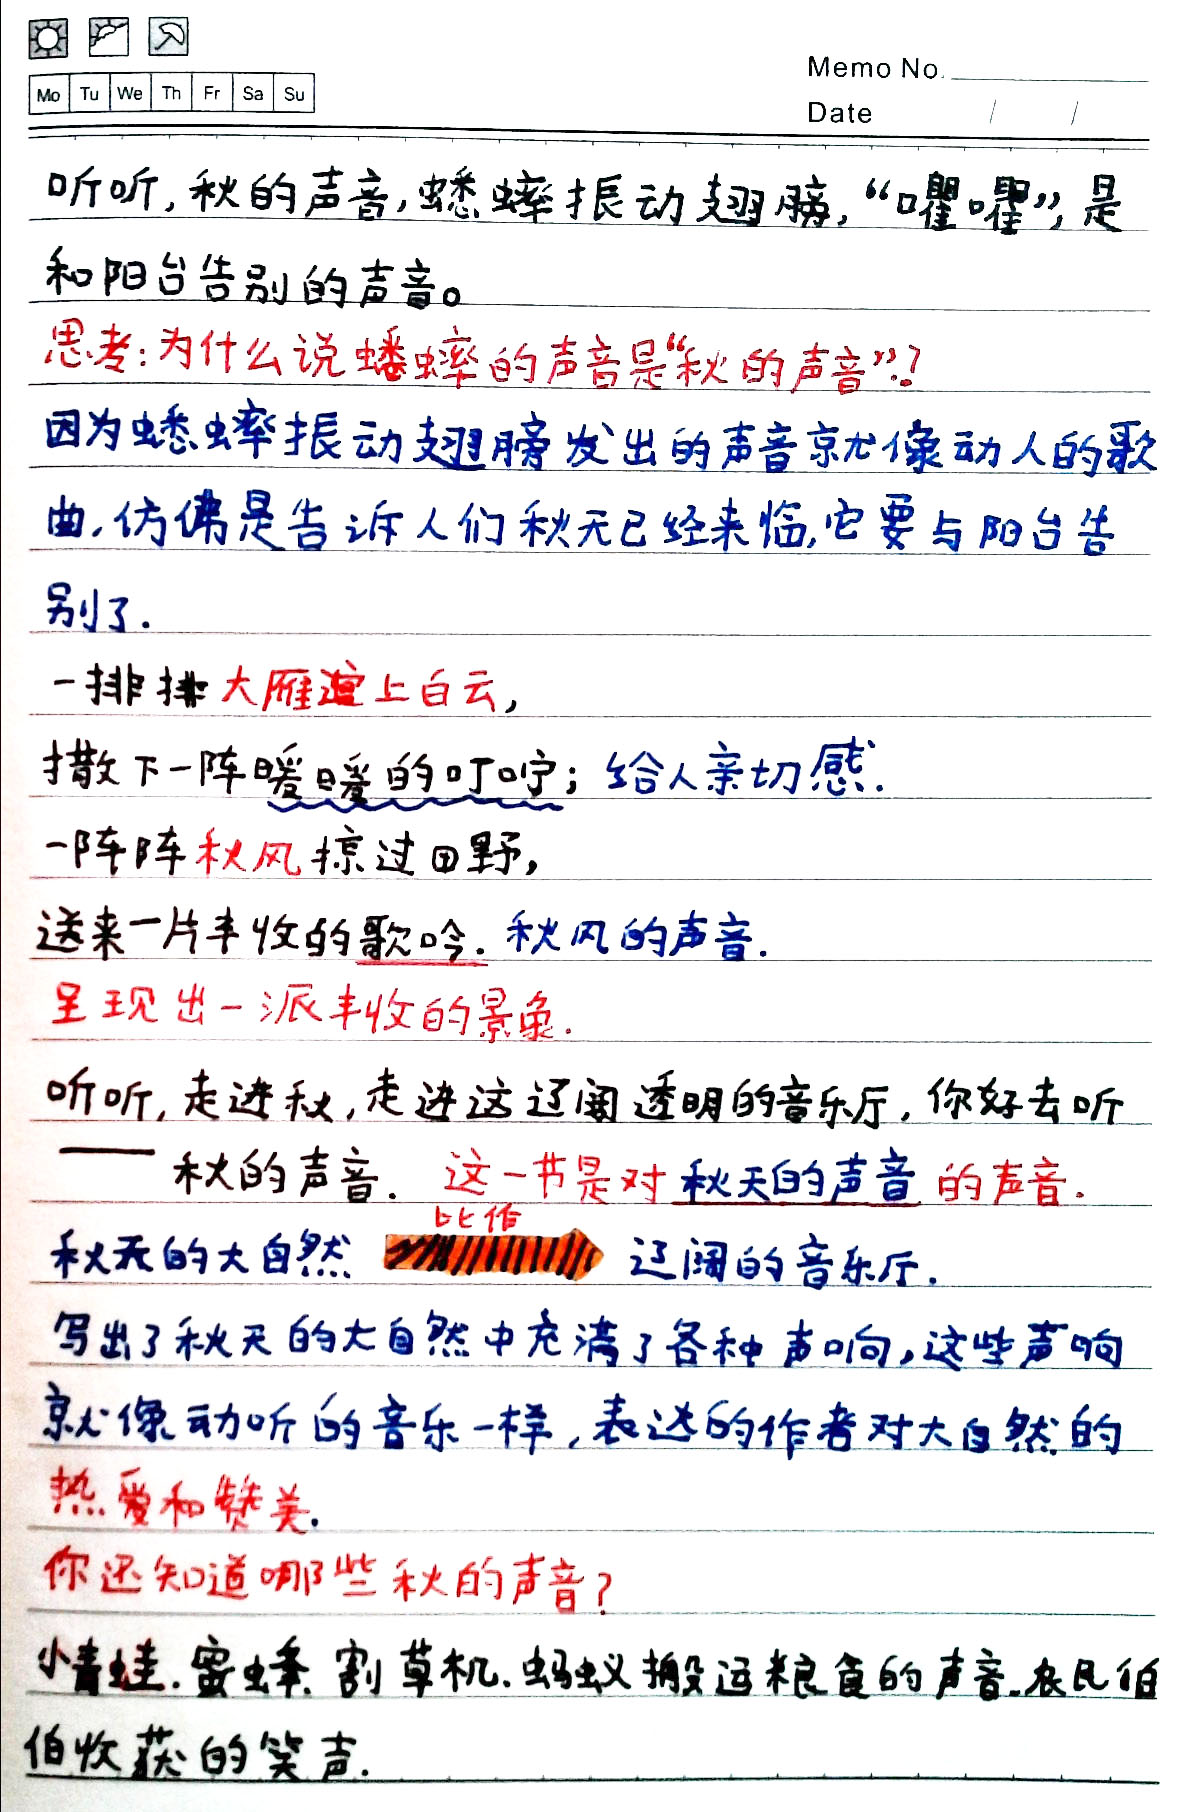 Mo Tu We Th Fr Sa Su
Memo No.
Date / /
听听,秋的声音,蟋蟀振动翅膀,“㘗㘗”,是
和阳台告别的声音。
思考:为什么说蟋蟀的声音是“秋的声音”?
因为蟋蟀振动翅膀发出的声音就像动人的歌
曲,仿佛是告诉人们秋天已经来临,它要与阳台告
别了.
一排排大雁追上白云,
撒下一阵暖暖的叮咛;给人亲切感.
一阵阵秋风掠过田野,
送来一片丰收的歌吟.秋风的声音.
呈现出一派丰收的景象.
听听,走进秋,走进这辽阔透明的音乐厅,你好去听
——秋的声音. 这一节是对秋天的声音的声音.
比作
秋天的大自然 辽阔的音乐厅.
写出了秋天的大自然中充满了各种声响,这些声响
就像动听的音乐一样,表达的作者对大自然的
热爱和赞美.
你还知道哪些秋的声音?
小青蛙.蜜蜂.割草机.蚂蚁搬运粮食的声音.农民伯
伯收获的笑声.